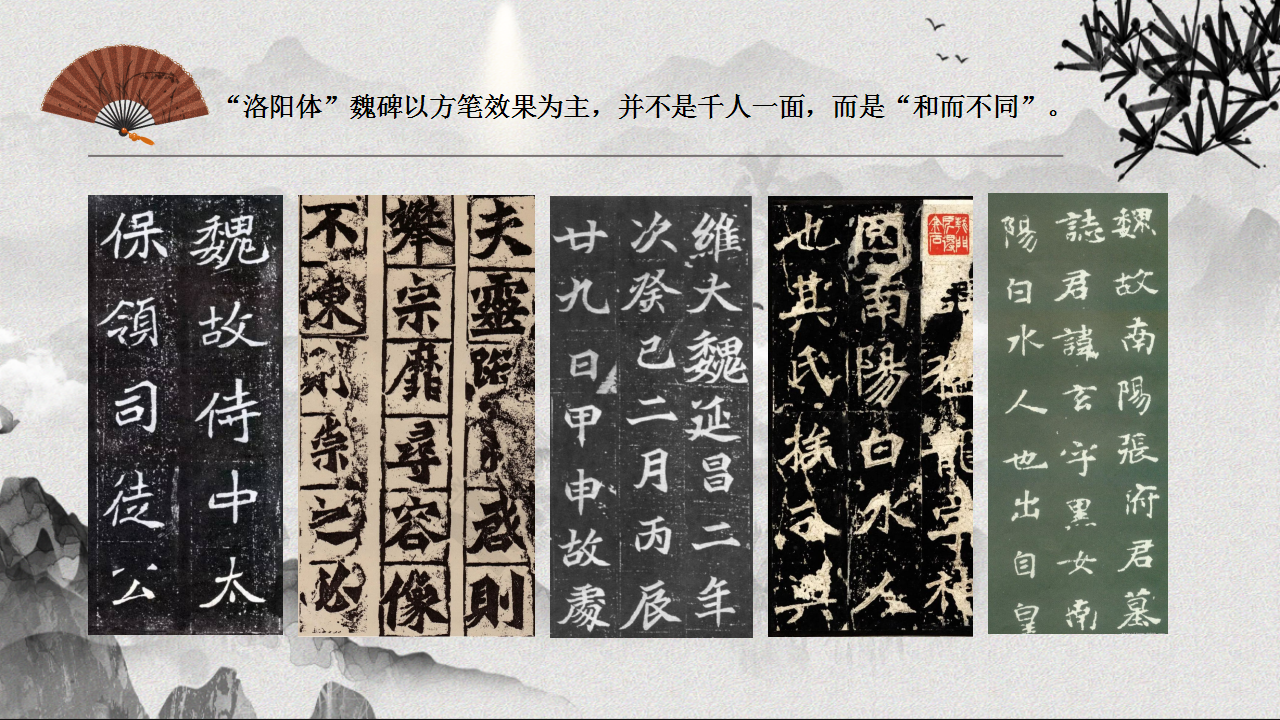 “洛阳体”魏碑以方笔效果为主，并不是千人一面，而是“和而不同”。
魏故侍中太
保領司徒公
夫靈啓則
攀宗靡尋容像
不陳則崇之必
維大魏延昌二年
次癸巳二月丙辰
廿九日甲申故處
猛龍字神
冏南陽白水人
也其氏族分興
魏故南陽張府君墓
誌君諱玄字黑女南
陽白水人也出自皇